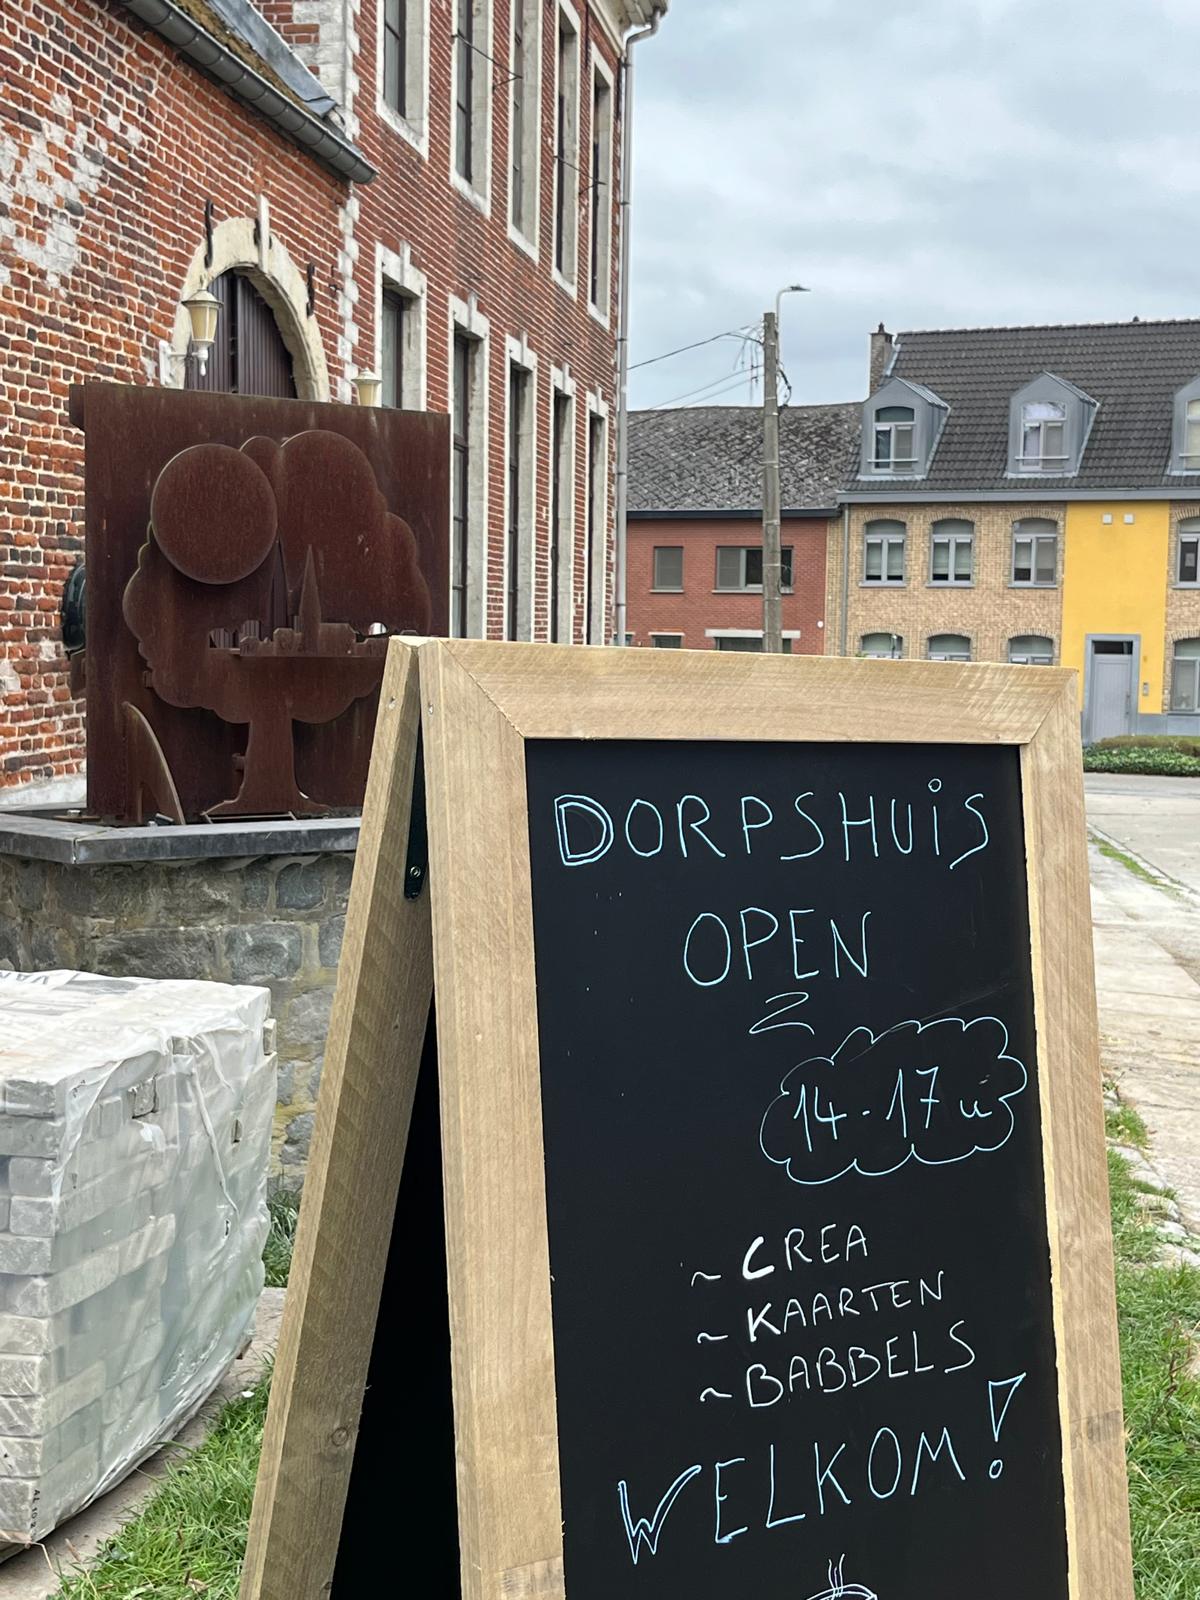 DORPSHUiS
OPEN
14 - 17 u
~ CREA
~ KAARTEN
~ BABBELS
WELKOM!